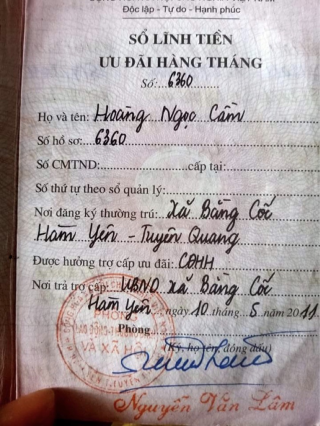 Độc lập - Tự do - Hạnh phúc
SỔ LĨNH TIỀN
ƯU ĐÃI HÀNG THÁNG
Số: 6360
Họ và tên: Hoàng Ngọc Cầm
Số hồ sơ: 6360
Số CMTND: cấp tại:
Số thứ tự theo sổ quản lý:
Nơi đăng ký thường trú: Xã Bằng Cốc
Hàm Yên - Tuyên Quang
Được hưởng trợ cấp ưu đãi: CĐHH
Nơi trả trợ cấp: UBND xã Bằng Cốc
Hàm Yên, ngày 10 tháng 5 năm 2011
Phòng
(Ký, họ tên, đóng dấu)
PHÒNG
VÀ XÃ HỘI
Nguyễn Văn Lâm